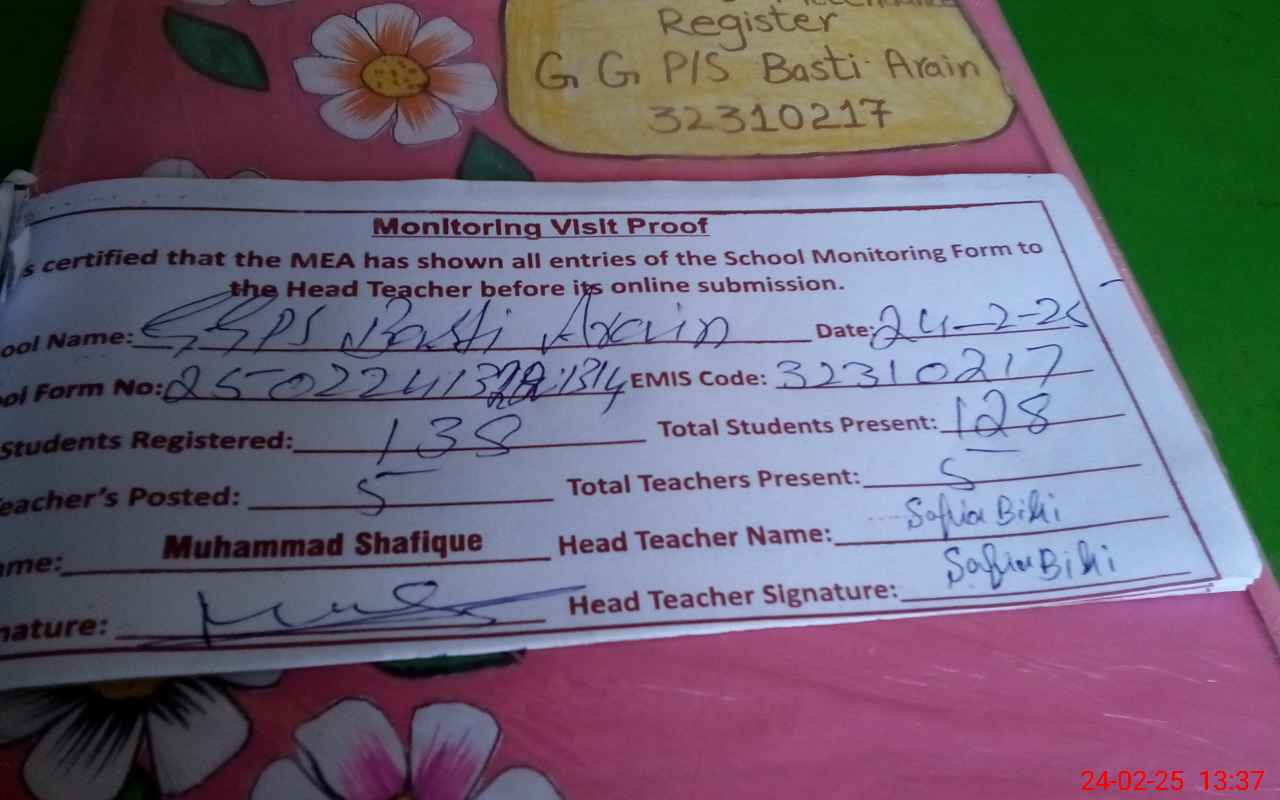 Register
G G P/S Basti Arain
32310217
Monitoring Visit Proof
s certified that the MEA has shown all entries of the School Monitoring Form to
the Head Teacher before its online submission.
ool Name: GGPS Basti Arain Date: 24-2-25
ol Form No: EMIS Code: 32310217
Students Registered: 138 Total Students Present: 128
eacher's Posted: 5 Total Teachers Present: 5
me: Muhammad Shafique Head Teacher Name: Safia Bibi
nature: Head Teacher Signature: Safia Bibi
24-02-25 13:37